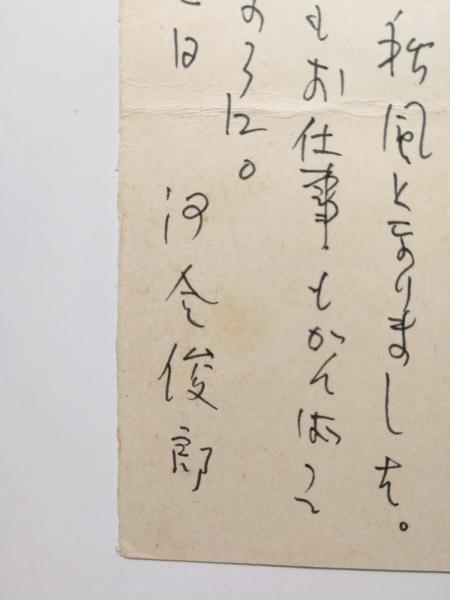 秋風となりました。
もお仕事もがんばって
に。
日 河合俊郎